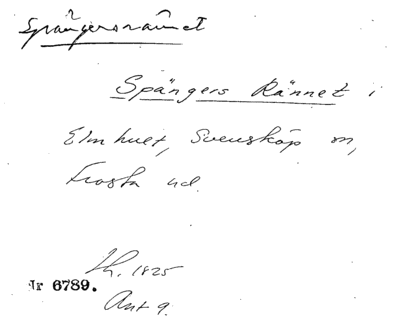 Spångersrännet
Spängers Rännet i
Elmhult, Svensköp sn,
Frosta hd.
Lh. 1825
Nr 6789.
Ant 9.